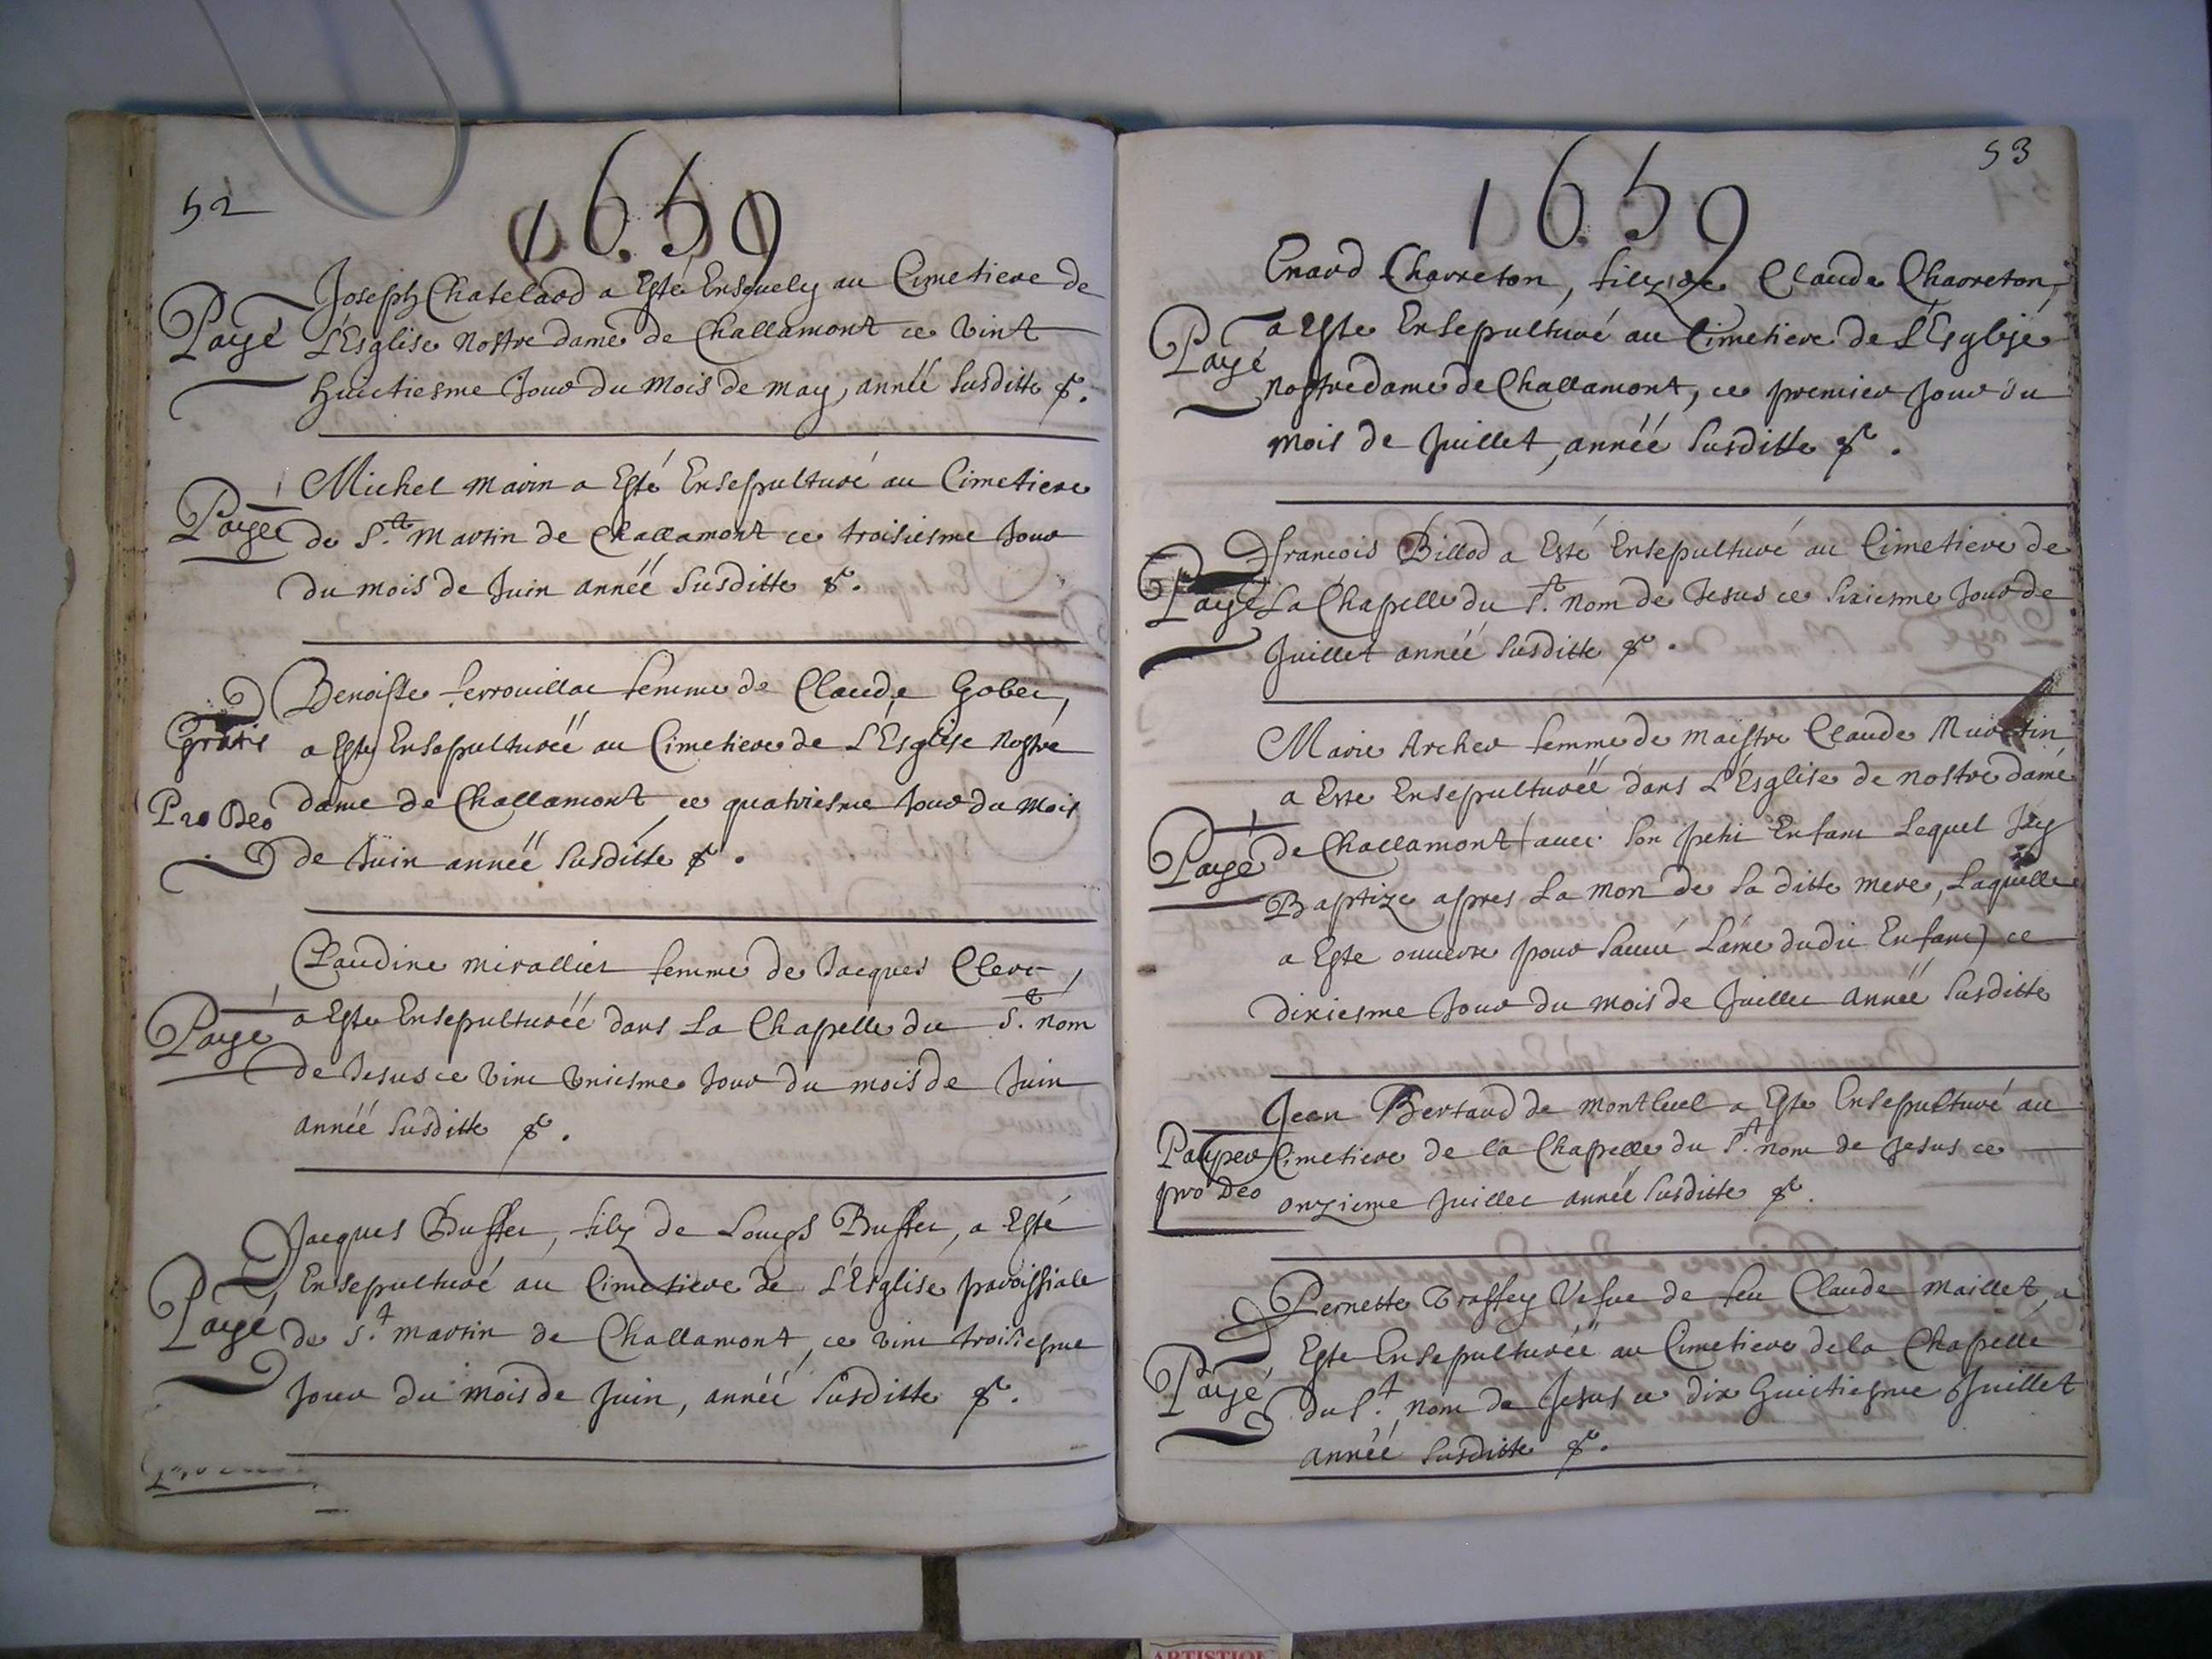 52
1659
Joseph Chatelard a Esté Ensevely au Cimetiere de
Payé L'Esglise Nostre dame de Challamont ce vint
huictiesme Jour du Mois de may, année susditte &c.
Michel marin a Esté Ensepulturé au Cimetiere
Payé de St. Martin de Challamont ce troisiesme Jour
du mois de Juin année susditte &c.
Benoiste ferrouillat femme de Claude Gobet,
Gratis a Esté Ensepulturéé au Cimetiere de L'Esglise Nostre
Pro Deo dame de Challamont ce quatriesme Jour du Mois
de Juin année susditte &c.
Claudine miralliet femme de Jacques Clerc,
Payé a Esté Ensepulturéé dans La Chapelle du St. nom
de Jesus ce vint vniesme Jour du mois de Juin
année susditte &c.
Jacques Buffet, filz de Louys Buffet, a Esté
Ensepulturé au Cimetiere de L'Esglise paroissiale
Payé de St. Martin de Challamont, ce vint troisiesme
Jour du mois de Juin, année susditte &c.
53
1659
Enard Charreton, filz de Claude Charreton,
Payé a Este Ensepulturé au Cimetiere de L'Esglise
Nostre dame de Challamont, ce premier Jour du
Mois de Juillet, année susditte &c.
francois Billod a Esté Ensepulturé au Cimetiere de
Payé La Chapelle du St. nom de Jesus ce sixiesme Jour de
Juillet année susditte &c.
Marie Archer femme de Maistre Claude
a Este Ensepulturéé dans L'Esglise de Nostre dame
Payé de Challamont (avec son petit Enfant Lequel J'ay
Baptizé apres La mort de sa ditte mere, Laquelle
a Este ouverte pour sauvé L'ame dudit Enfant) ce
dixiesme Jour du mois de Juillet année susditte
Jean Bertaud de Montluel a Este Ensepulturé au
Pauper Cimetiere de la Chapelle du St. nom de Jesus ce
pro Deo onzieme Juillet année susditte &c.
Pernette Traffey Vefue de feu Claude Maillet, a
Este Ensepulturéé au Cimetiere de la Chapelle
Payé du St. nom de Jesus ce dix huictiesme Juillet
année susditte &c.